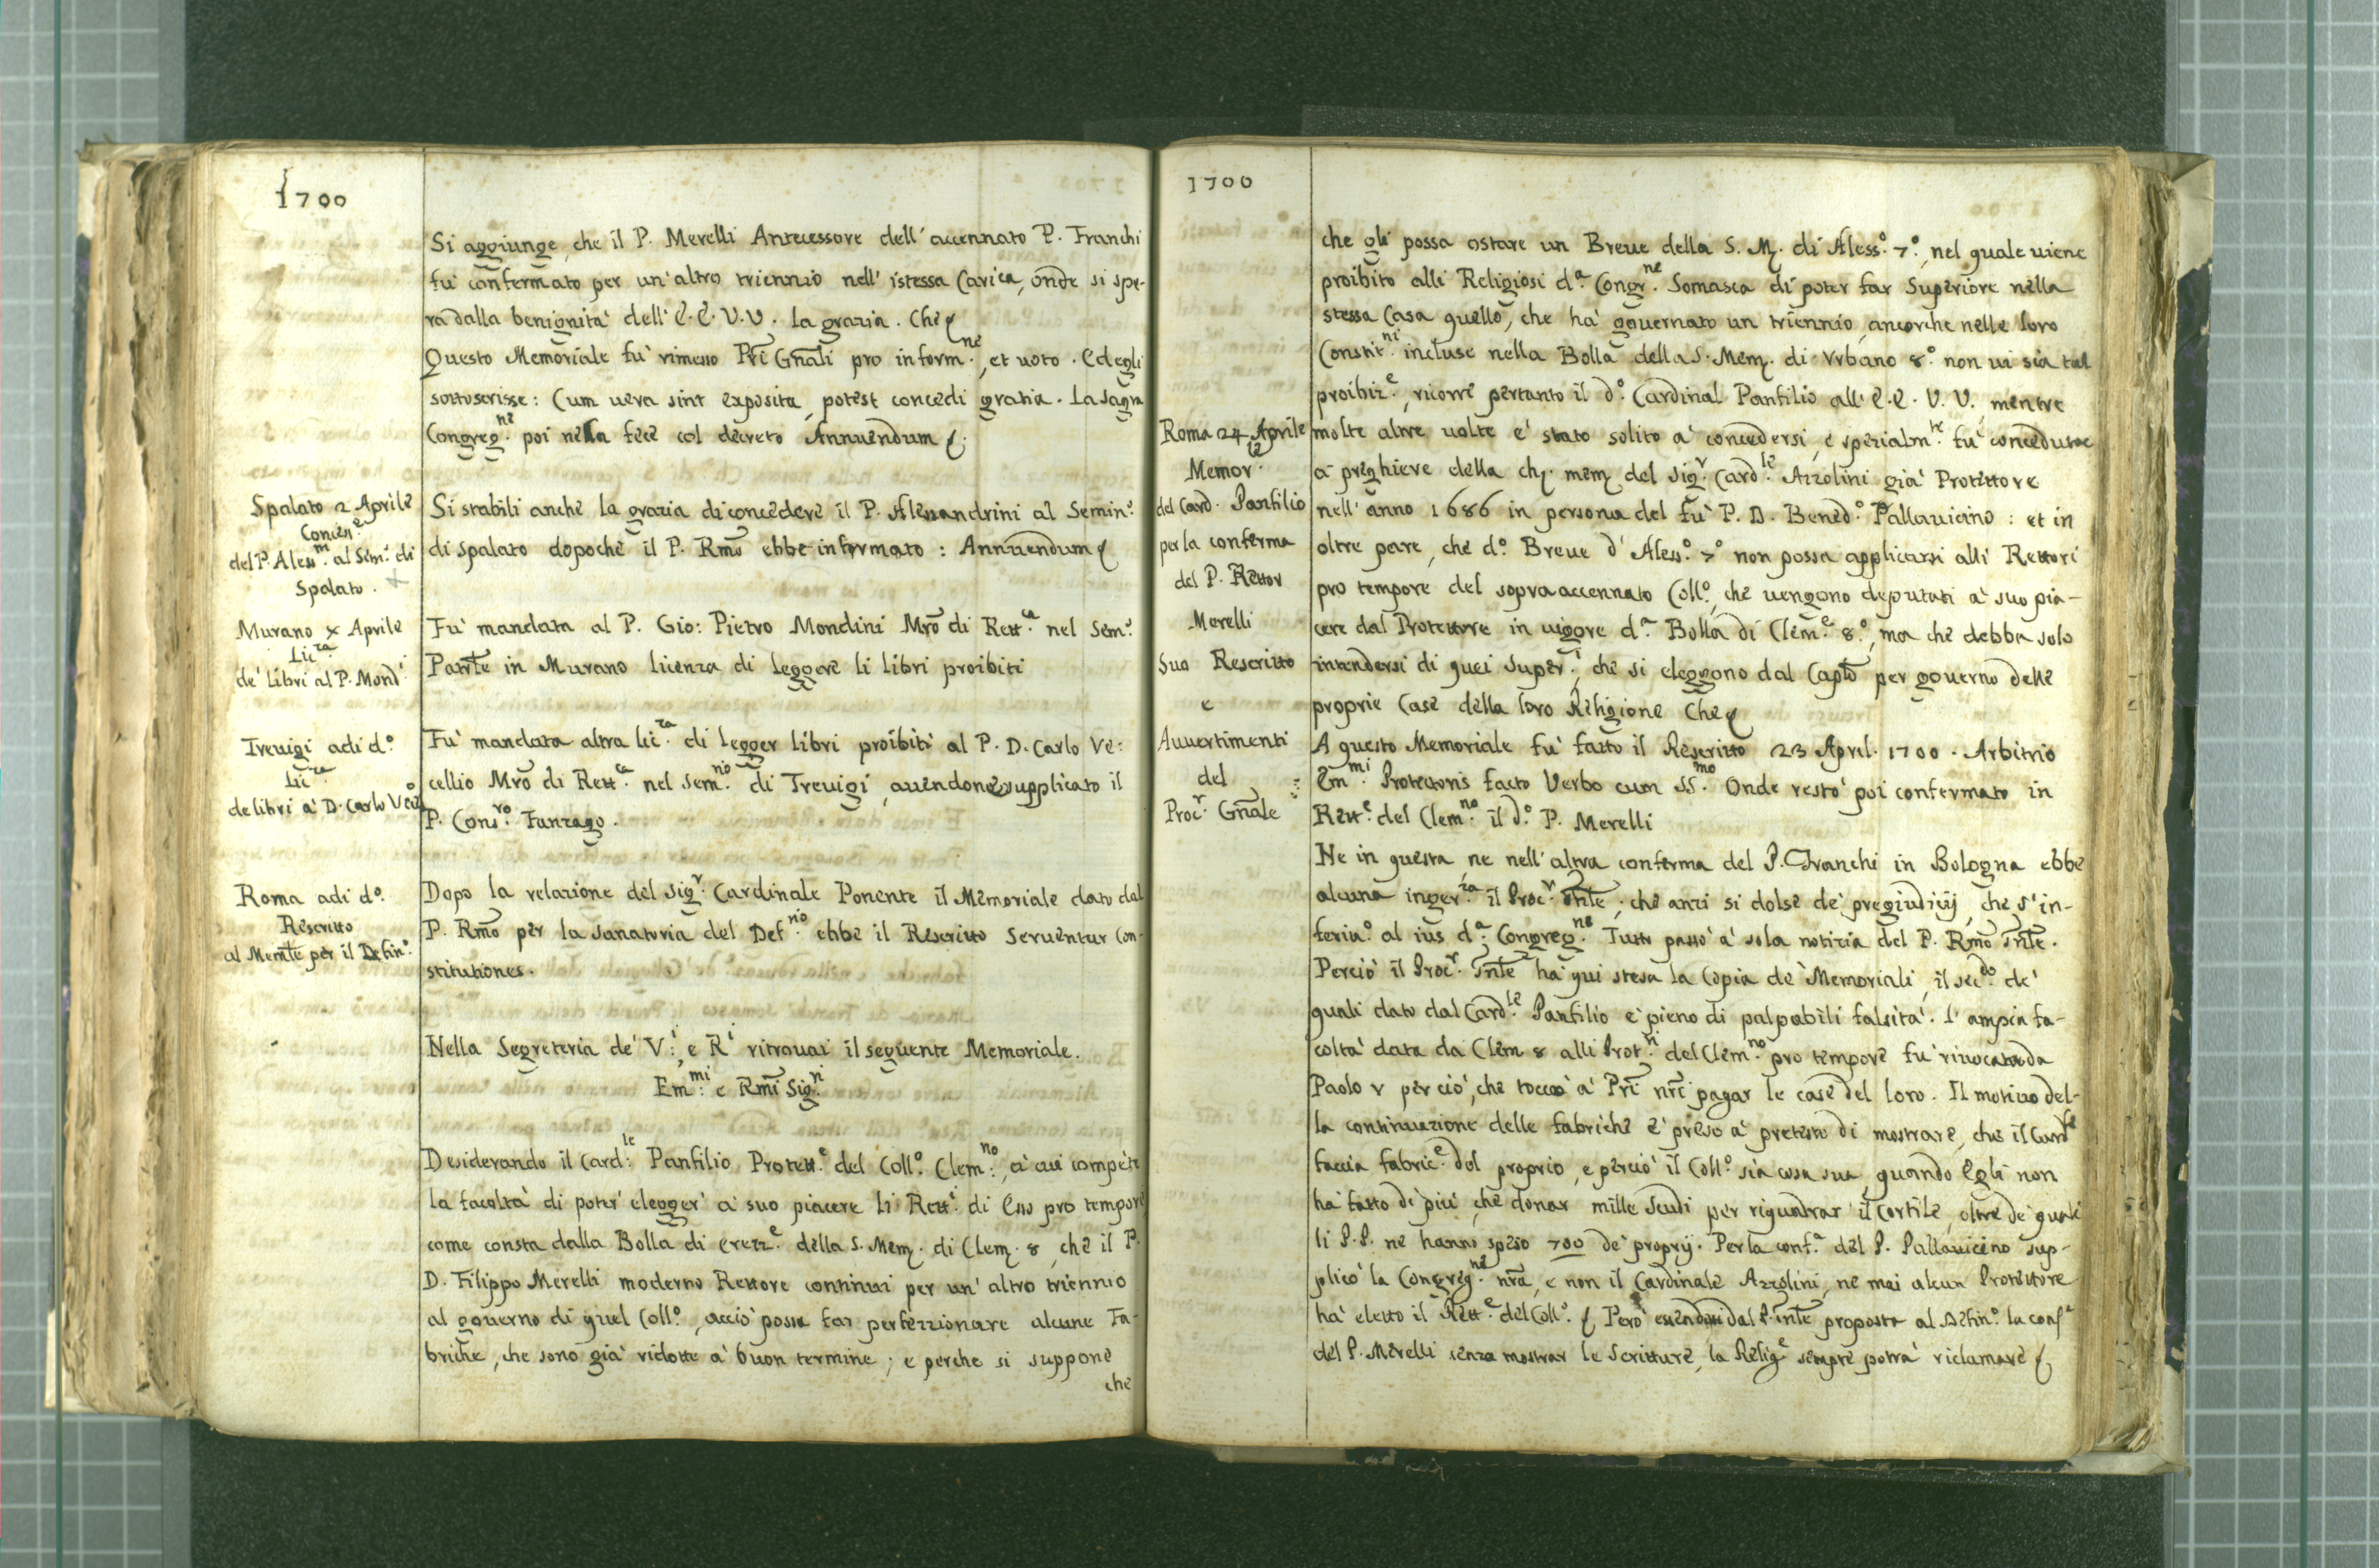 1700
Si aggiunge, che il P. Merelli Antecessore dell' accennato P. Franchi
fu' confermato per un' altro triennio nell' istessa Carica, onde si spe-
ra dalla benignita' dell' E.E. V.V. la grazia. Che &
Questo Memoriale fu' rimesso Pri Gnali pro inform.ne, et voto. Ed egli
sottoscrisse: Cum vera sint exposita, potest concedi gratia. La Sagra
Congreg.ne poi nella fece col decreto Annuendum &.
Spalato 2 Aprile
Conces.e
del P. Aless.m al Sem.o di
Spalato.
Si stabili anche la grazia di concedere il P. Alessandrini al Semin.o
di Spalato dopoche il P. Rmo ebbe informato: Annuendum &
Murano x Aprile
Lic.za
de' libri al P. Mond.i
Fu' mandata al P. Gio: Pietro Mondini Mro di Rett.ca nel Sem.o
Patrle in Murano licenza di leggere li libri proibiti
Trevigi adi d.o
Lic.za
de libri a' D. Carlo
Fu' mandata altra lic.za di legger libri proibiti al P. D. Carlo Ve:
cellio Mro di Rett.ca nel Sem.nio di Trevigi, avendone supplicato il
P. Cons.ro Fanzago.
Roma adi d.o
Rescritto
al Memle per il Defin.o
Dopo la relazione del Sig.r Cardinale Ponente il Memoriale dato dal
P. Rmo per la Sanatoria del Def.nio ebbe il Rescritto Serventur Con-
stitutiones.
Nella Segreteria de' V.i, e R.i ritrovai il seguente Memoriale.
Em.mi e Rmi Sig.ri
Desiderando il Card.le Panfilio Protett.e del Coll.o Clem.no, a' cui compete
la facolta' di poter' elegger' a' suo piacere li Rett.i di Esso pro tempore
come consta dalla Bolla di erezz.e della S. Mem. di Clem. 8, che il P.
D. Filippo Merelli moderno Rettore continui per un' altro triennio
al governo di quel Coll.o, accio' possa far perfezzionare alcune Fa-
briche, che sono gia' ridotte a' buon termine; e perche si suppone
che
1700
che gli possa ostare un Breve della S. M. di Aless.o 7.o, nel quale viene
proibito alli Religiosi d.a Congr.ne Somasca di poter far Superiore nella
stessa Casa quello, che ha' governato un triennio, ancorche nelle loro
Constit.ni incluse nella Bolla della S. Mem. di Vrbano 8.o non vi sia tal
proibiz.e, ricorre pertanto il d.o Cardinal Panfilio all' E.E. V.V., mentre
Roma 24 Aprile
Memor.le
del Card. Panfilio
per la conferma
del P. Rettor
Merelli
Suo Rescritto
e
Avvertimenti
del
Proc.r Gnale
molte altre volte e' stato solito a' concedersi, e spezialm.te fu' conceduta
a preghiere della ch. mem. del Sig.r Card.le Azzolini gia' Protettore
nell' anno 1686 in persona del fu' P. D. Bened.o Pallavicino: et in
oltre pare, che d.o Breve d' Aless.o 7.o non possa applicarsi alli Rettori
pro tempore del sopraaccennato Coll.o, che vengono deputati a' suo pia-
cere dal Protettore in vigore d.a Bolla di Clem.e 8.o, ma che debba solo
intendersi di quei Super.i, che si eleggono dal Caplo per governo delle
proprie Case della loro Religione Che &
A questo Memoriale fu' fatto il Rescritto 23 April. 1700. Arbitrio
Em.mi Protectoris facto Verbo cum SS.mo Onde resto' poi confermato in
Rett.e del Clem.no il d.o P. Merelli
Ne in questa, ne nell' altra conferma del P. Franchi in Bologna ebbe
alcuna inger.za il Proc.r Gnle; che anzi si dolse de' pregiudizij, che s' in-
feria.o al ius d.a Congreg.ne Tutto passo' a' sola notizia del P. Rmo Gnle.
Percio' il Proc.r Gnle ha' qui stesa la Copia de' Memoriali, il sec.do de'
quali dato dal Card.le Panfilio e' pieno di palpabili falsita'. L' ampia fa-
colta' data da Clem 8 alli Prot.ri del Clem.no pro tempore fu' rivocata da
Paolo V per cio', che tocco' a' Pri nri pagar le case del loro. Il motivo del-
la continuazione delle fabriche e' preso a' pretesto di mostrare, che il Card.le
faccia fabric.e del proprio, e percio' il Coll.o sia cosa sua, quando Egli non
ha' fatto di piu', che donar mille Scudi per riquadrar il Cortile, oltre de' quali
li P.P. ne hanno speso 700 de' proprij. Per la conf.a del P. Pallavicino sup-
plico' la Congreg.ne nra, e non il Cardinale Azzolini, ne mai alcun Protettore
ha' eletto il Rett.e del Coll.o & Pero' essendosi dal P. Gnle proposta al Defin.o la conf.a
del P. Merelli senza mostrar le Scritture, la Relig.e sempre potra' riclamare &